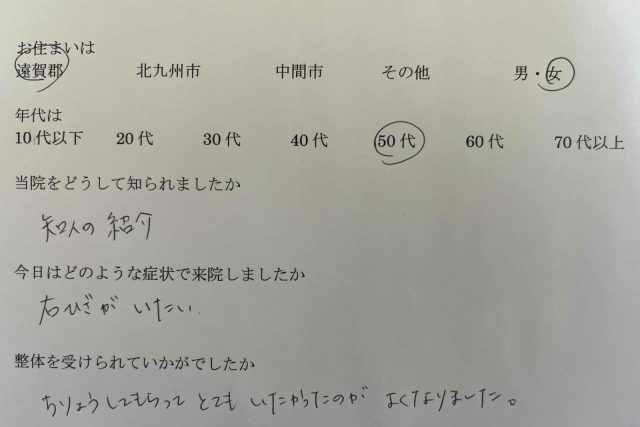 お住まいは
遠賀郡 北九州市 中間市 その他 男・女
年代は
10代以下 20代 30代 40代 50代 60代 70代以上
当院をどうして知られましたか
知人の紹介
今日はどのような症状で来院しましたか
右ひざがいたい.
整体を受けられていかがでしたか
ちりょうしてもらって とても いたかったのが よくなりました。